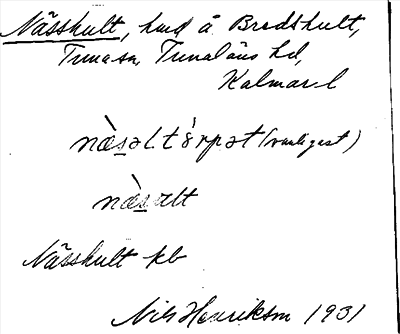 Nässhult, hmd å Bredshult,
Tunasn, Tunaläns hd,
Kalmar l
nὰsəltὸrpət (vanligast)
nὰsəlt
Nässhult kb
Nils Henrikson 1931